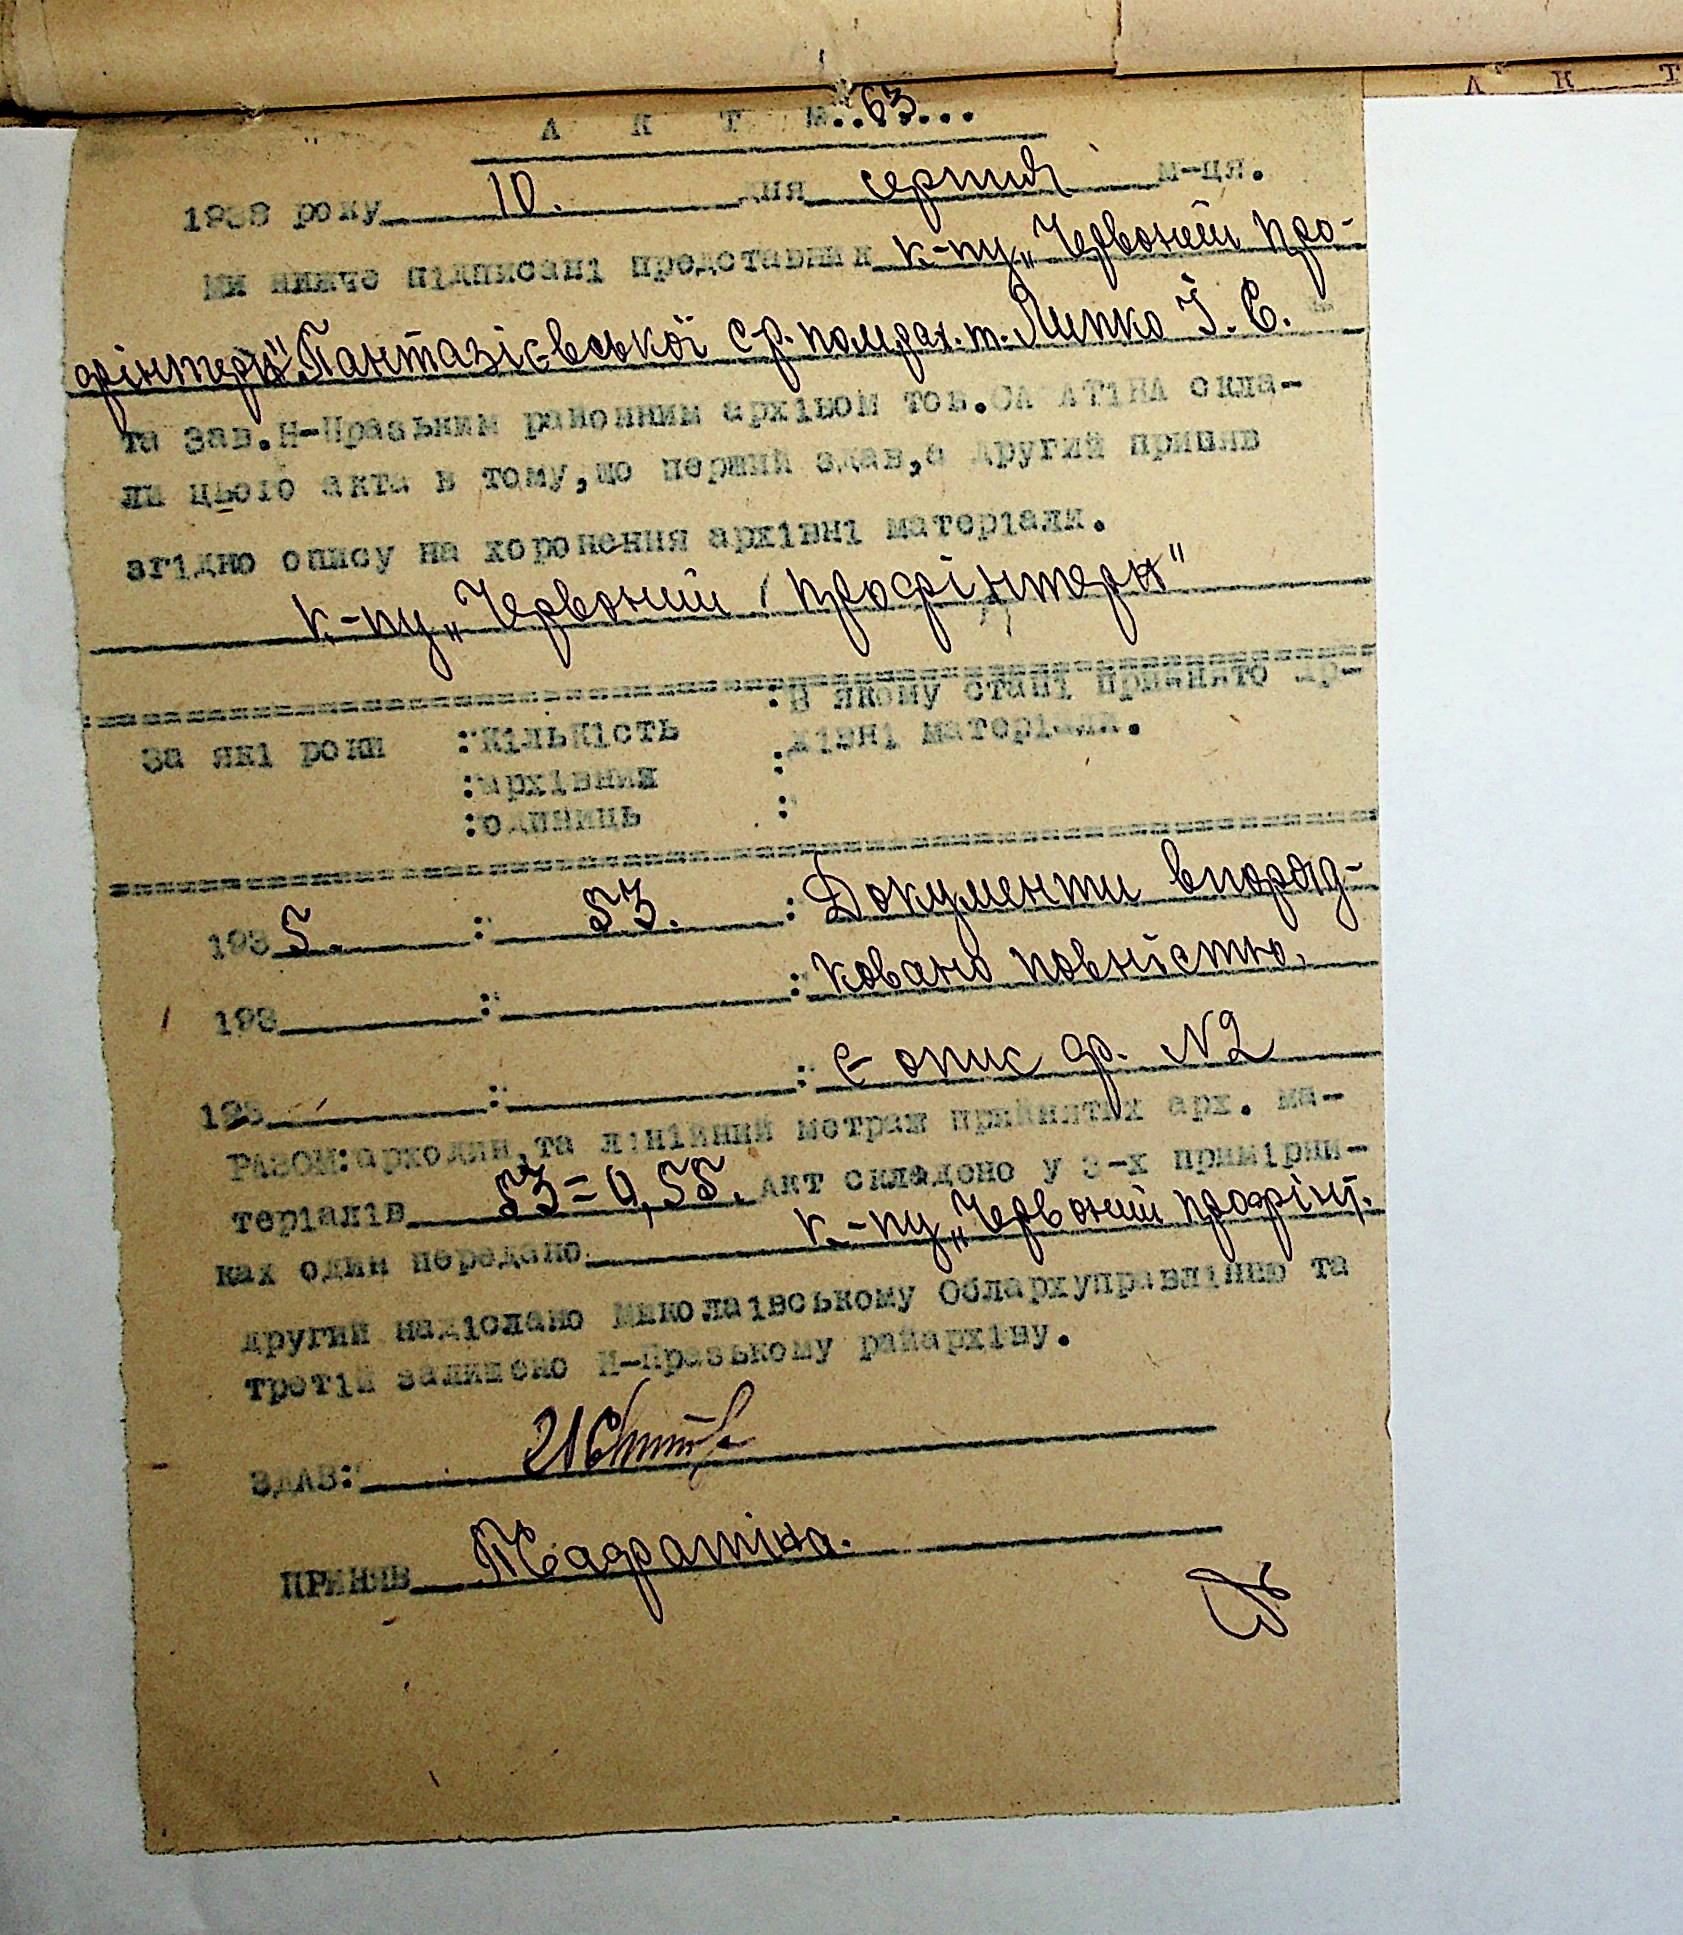 А К Т №..63...
1938 року 10. дня серпня м-ця.
Ми нижче підписані представник к-пу „Червоний про-
фінтерн" Пантазієвської с-р. пом.рах. т. Липко І. Є.
та Зав.Н-Празьким районним архівом тов. скла-
ли цього акта в тому,що перший здав,а другий прийняв
згідно опису на хоронення архівні матеріали.
к-пу „Червоний профінтерн"
За які роки :Кількість :В якому стані прийнято ар-
:архівних .хівні матеріали.
:одиниць :
1935. : 53. : Документи впоряд-
193 : : ковано повністю.
193 : : Є опис ф. №2
РАЗОМ:арходин,та лінійний метраж прийнятих арх. ма-
теріалів 53=0,55. Акт складено у 3-х примірни-
ках один передано к-пу „Червоний профінт.
другий надіслано Миколаївському Облархуправлінню та
третій залишено Н-Празькому райархіву.
ЗДАВ:
ПРИЙНЯВ
А К Т